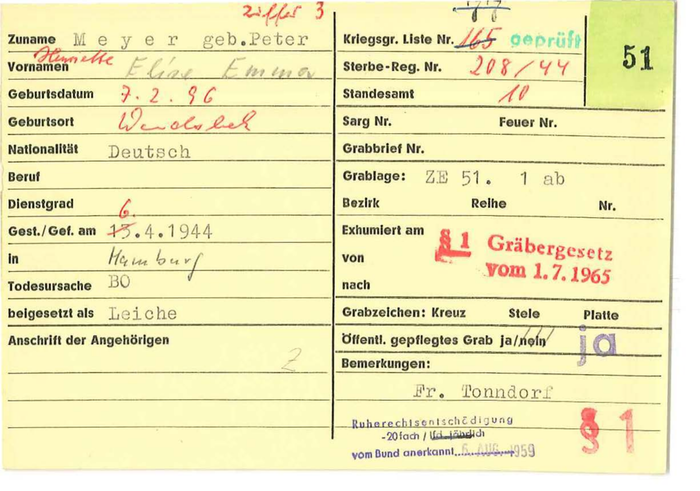 Ziffer 3
Zuname Meyer geb. Peter
Henriette
Vornamen Elise Emma
Geburtsdatum 7.2.96
Geburtsort Wandsbek
Nationalität Deutsch
Beruf
Dienstgrad
6.
Gest./Gef. am 13.4.1944
in Hamburg
Todesursache BO
beigesetzt als Leiche
Anschrift der Angehörigen
Z
Kriegsgr. Liste Nr. 165 geprüft
Sterbe-Reg. Nr. 208/44
Standesamt 10
51
Sarg Nr. Feuer Nr.
Grabbrief Nr.
Grablage: ZE 51. 1 ab
Bezirk Reihe Nr.
Exhumiert am
von
nach
§ 1 Gräbergesetz
vom 1.7.1965
Grabzeichen: Kreuz Stele Platte
Öffentl. gepflegtes Grab ja/nein ja
Bemerkungen:
Fr. Tonndorf
Ruherechtsentschädigung
-20fach / jährlich
vom Bund anerkannt 5. AUG. 1959
§ 1